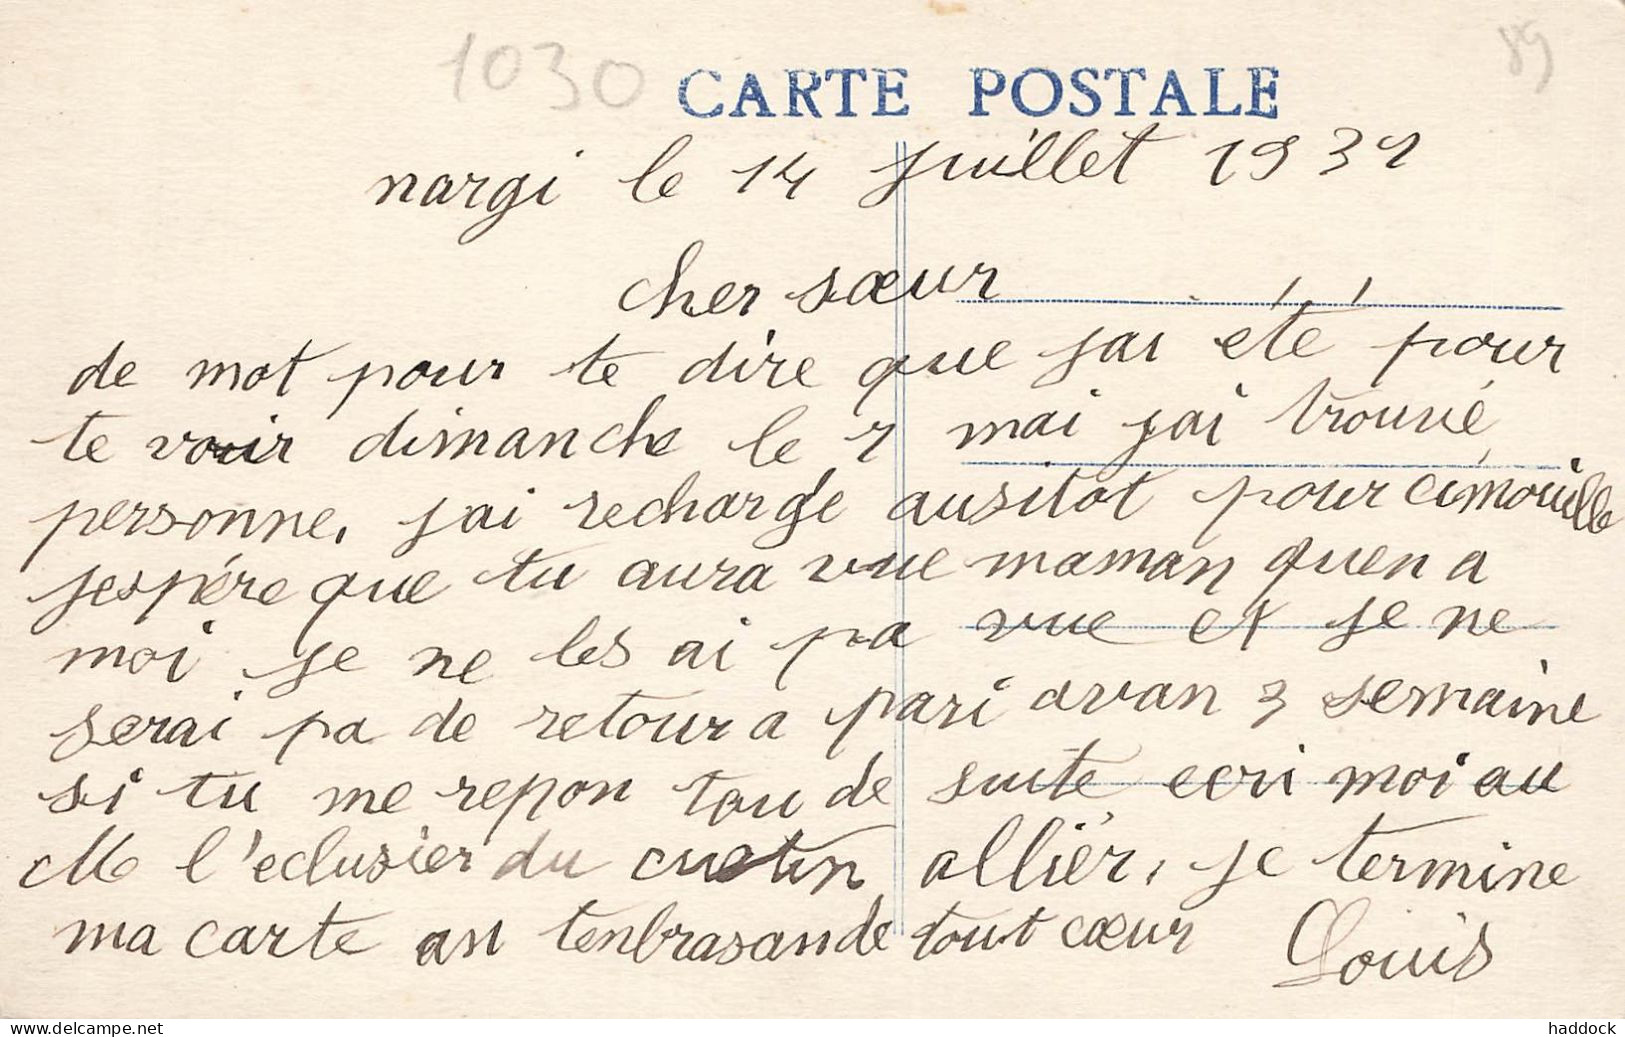 1030
89
CARTE POSTALE
nargi le 14 juillet 1931
cher sœur
de mot pour te dire que jai été pour
te voir dimanche le 7 mai jai trouvé
personne. jai rechargé ausitot pour cimouille
jespére que tu aura vue maman quen a
moi je ne les ai pa vue et je ne
serai pa de retour a pari avan 3 semaine
si tu me repon tou de suite ecri moi au
M l'eclusier du allier, je termine
ma carte an tenbrasande tout cœur Louis
delcampe.net
haddock